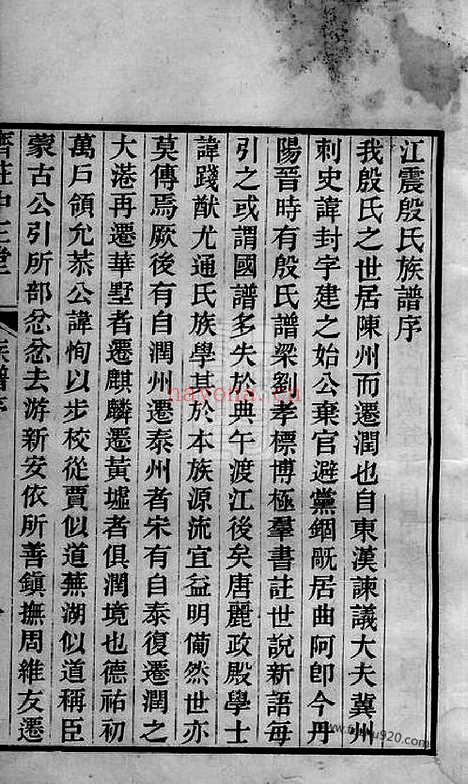 江震殷氏族譜序
我殷氏之世居陳州而遷潤也自東漢諫議大夫冀州
刺史諱封字建之始公棄官避黨錮厫居曲阿卽今丹
陽晉時有殷氏譜梁劉孝標博極羣書註世說新語每
引之或謂國譜多失於典午渡江後矣唐麗政殿學士
諱踐猷尤通氏族學其於本族源流宜益明備然世亦
莫傳焉厥後有自潤州遷泰州者宋有自泰復遷潤之
大港再遷華墅者遷麒麟遷黃墟者俱潤境也德祐初
萬戶領允恭公諱恂以步校從賈似道蕪湖似道稱臣
蒙古公引所部忿忿去游新安依所善鎮撫周維友遷
族譜序
nayona.cn